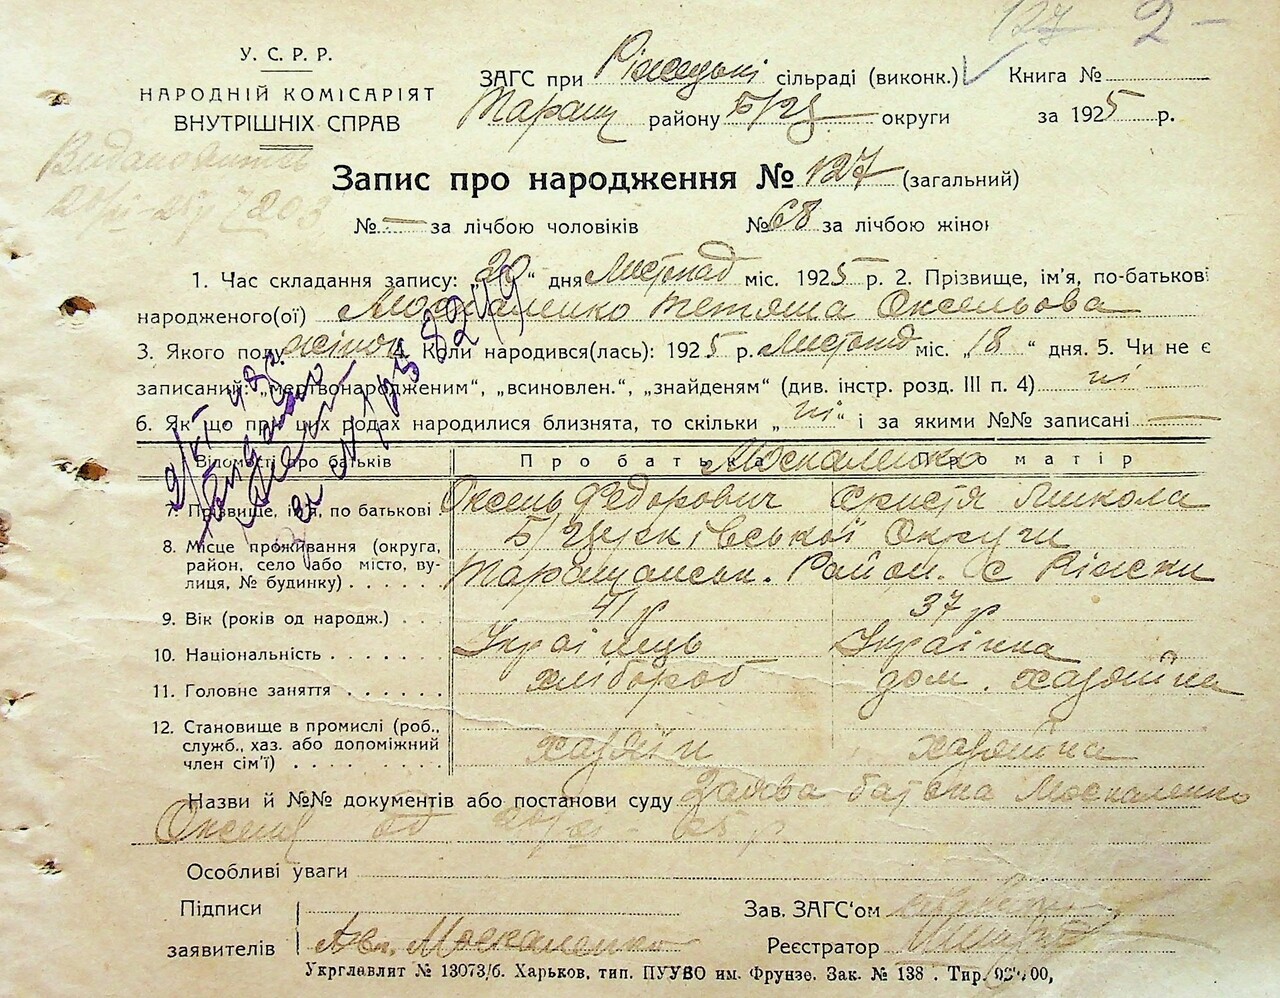 127 2 –
У. С. Р. Р.
НАРОДНІЙ КОМІСАРІЯТ
ВНУТРІШНІХ СПРАВ
ЗАГС при сільраді (виконк.) Книга №
Таращ району Б/Ц округи за 1925 р.
Запис про народження № 127 (загальний)
№ — за лічбою чоловіків № 68 за лічбою жінок
1. Час складання запису: „20“ дня Листопад міс. 1925 р. 2. Прізвище, ім'я, по-батькові
народженого(ої) Москаленко Тетяна Оксельова
3. Якого полу жіноч 4. Коли народився(лась): 1925 р. Листопад міс. „18“ дня. 5. Чи не є
записаний: „мертвонародженим“, „всиновлен.“, „знайденям“ (див. інстр. розд. III п. 4) ні
6. Як що при цих родах народилися близнята, то скільки „ні“ і за якими №№ записані —
Відомості про батьків Про батька Москаленко Про матір
7. Прізвище, ім'я, по батькові Оксень Федорович Христя Микола
8. Місце проживання (округа, Б/Церківської Округи
район, село або місто, ву-
лиця, № будинку) Таращанськ. Район. с
9. Вік (років од народж.) 41 р 37 р
10. Національність Українець Українка
11. Головне заняття хлібороб дом. хазяйка
12. Становище в промислі (роб.,
служб., хаз. або допоміжний
член сім'ї) хазяїн хазяйка
Назви й №№ документів або постанови суду Заява батька Москаленко
Оксена од 20/XI – 25 р
Особливі уваги
Підписи Зав. ЗАГС'ом
заявителів Москаленко Реєстратор
Укрглавлит № 13073/б. Харьков, тип. ПУУВО им. Фрунзе. Зак. № 138. Тир.